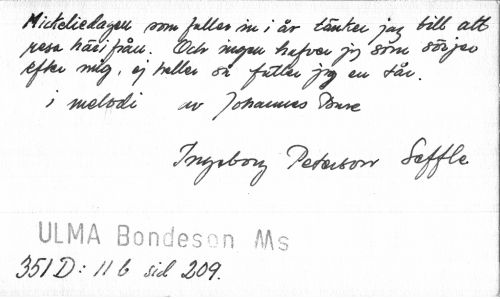 Mickeliedagen som faller in i år tänker jag bill att
resa härifrån. Och ingen hafver jg som sörjer
efter mig, ej heller så fäller jg en tår.
i melodi av Johannes Bure
Ingeborg Peterson Seffle
ULMA Bondeson Ms
351 D: 11 b sid 209.